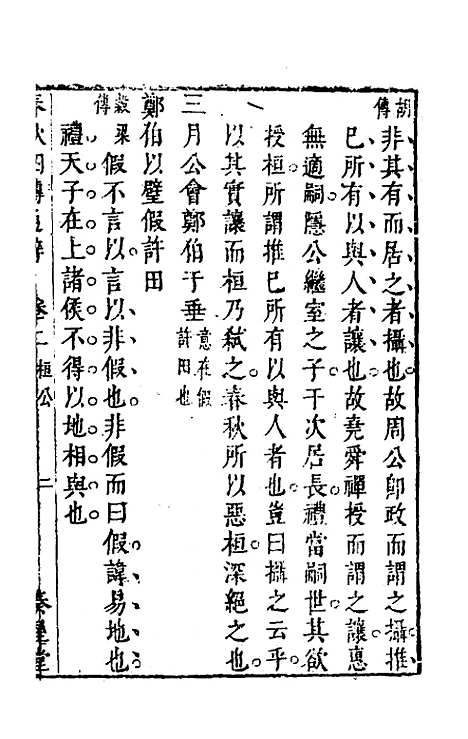 胡傳
非其有而居之者攝也故周公卽政而謂之攝推
已所有以與人者讓也故堯舜禪授而謂之讓惠
無適嗣隱公繼室之子于次居長禮當嗣世其欲
授桓所謂推已所有以與人者也豈曰攝之云乎
以其實讓而桓乃弑之春秋所以惡桓深絶之也
三月公會鄭伯于垂意在假許田也
鄭伯以璧假許田
穀梁傳
假不言以言以非假也非假而曰假諱易地也
禮天子在上諸侯不得以地相與也
春秋四傳 卷二 桓公 二